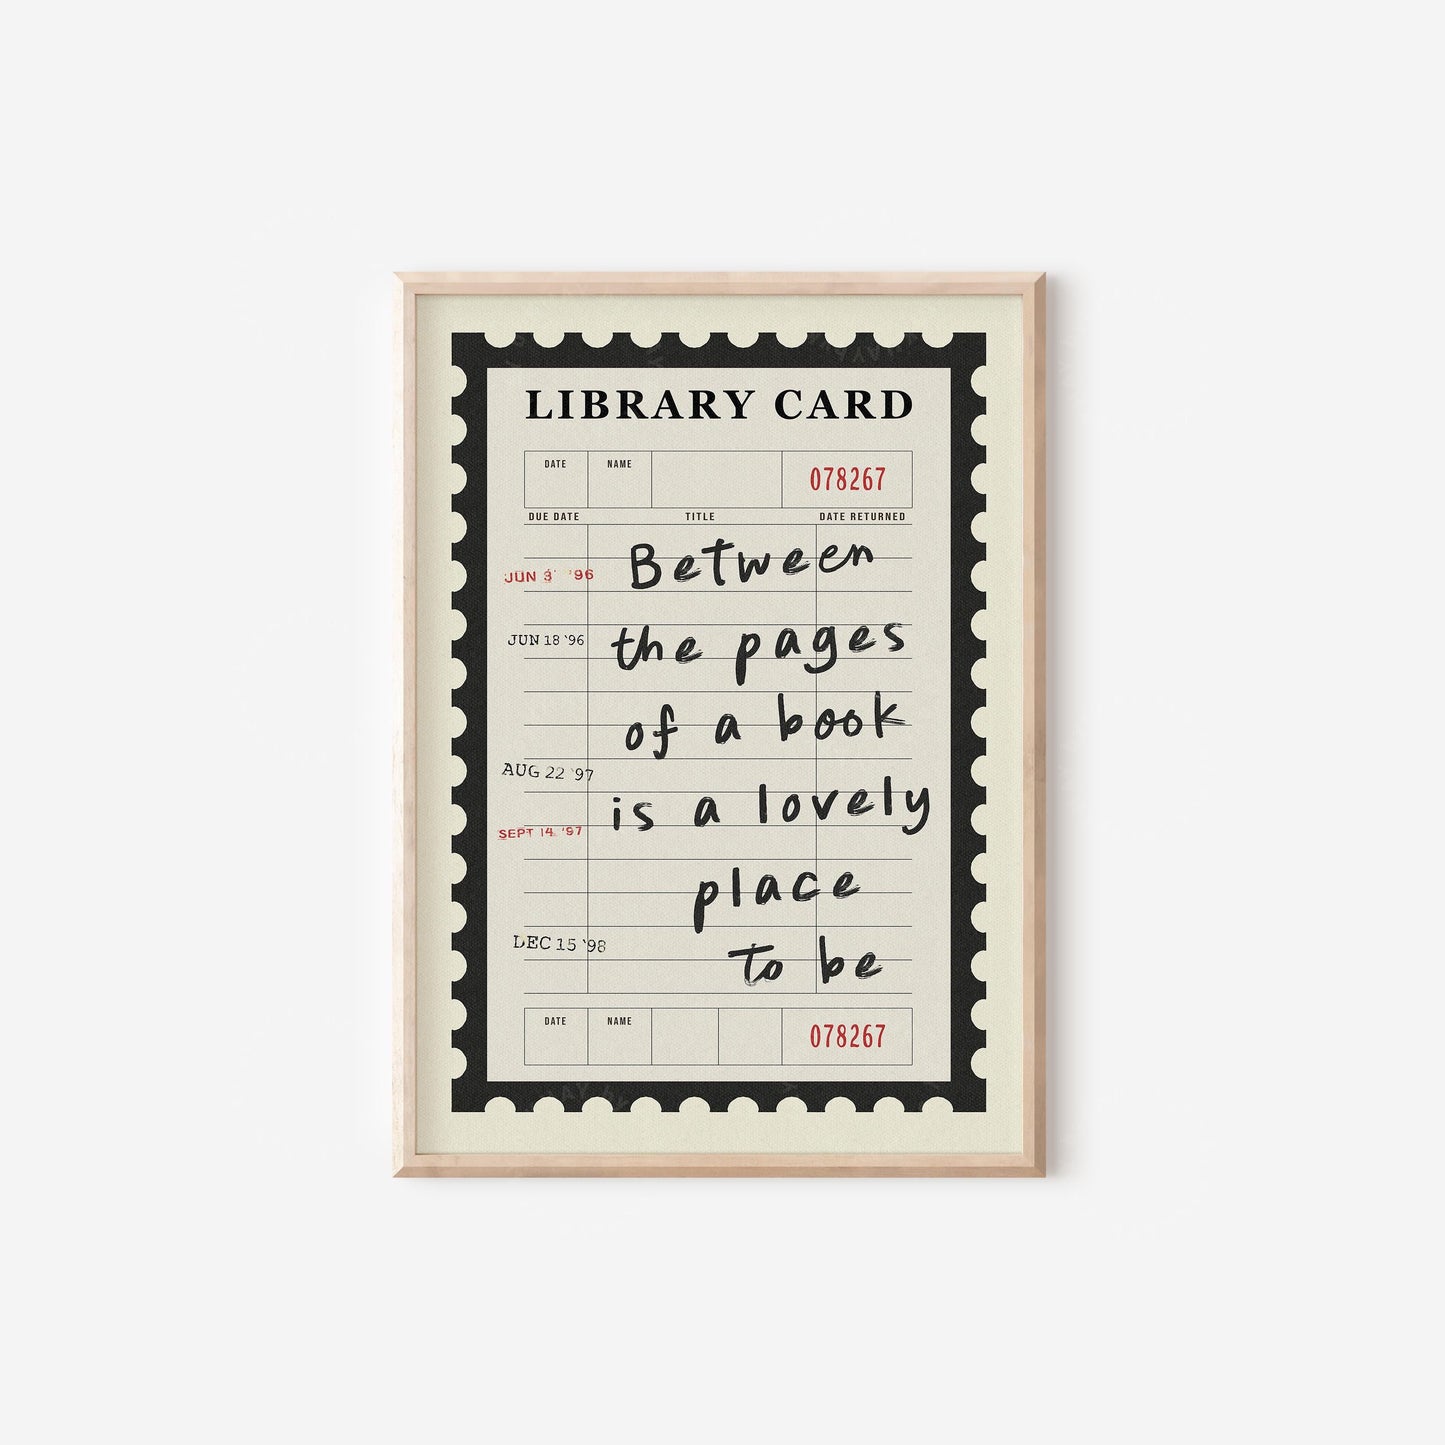 LIBRARY CARD
DATE NAME 078267
DUE DATE TITLE DATE RETURNED
Between
JUN 3 '96
the pages
JUN 18 '96
of a book
AUG 22 '97
is a lovely
SEPT 14 '97
place
DEC 15 '98
to be
DATE NAME 078267